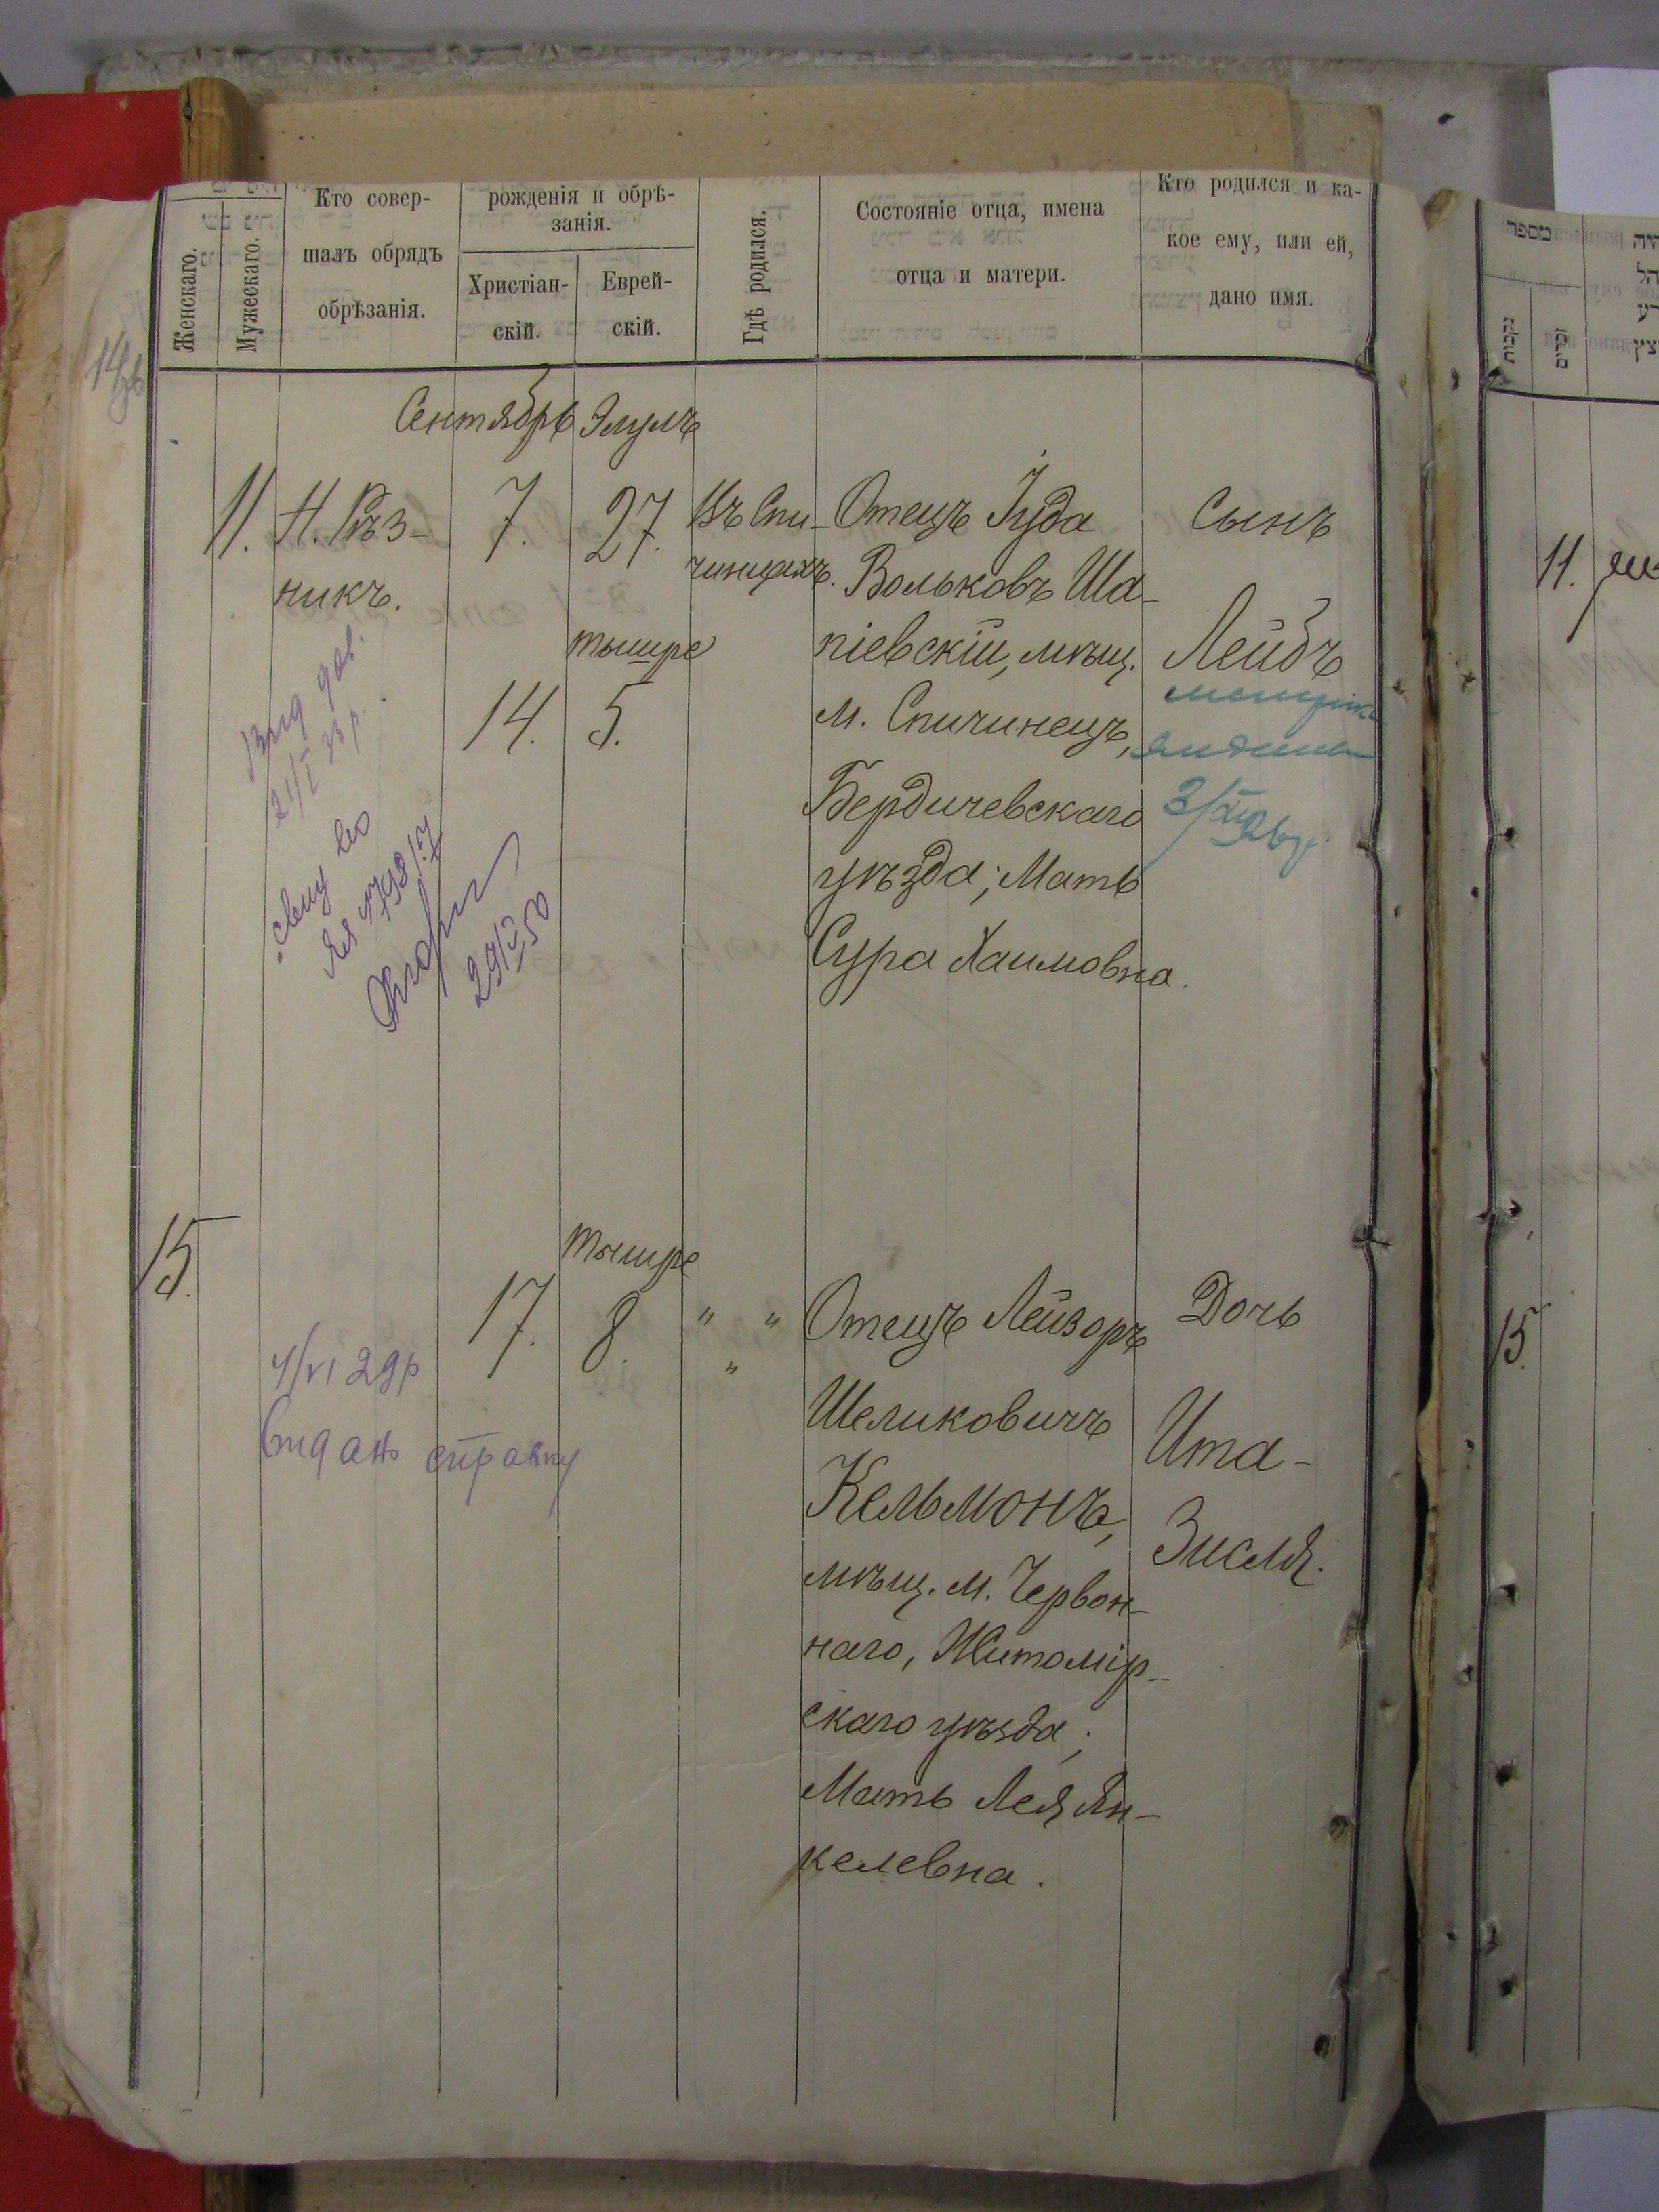 Женскаго.
Мужескаго.
Кто совер-
шалъ обрядъ
обрѣзанія.
рожденія и обрѣ-
занія.
Христіан-
скій.
Еврей-
скій.
Гдѣ родился.
Состояніе отца, имена
отца и матери.
Кто родился и ка-
кое ему, или ей,
дано имя.
Сентябрь Элулъ
11. Н. Рѣз-
никъ.
7.
27.
тышре
14. 5.
Въ Спи-
чинцахъ.
Отецъ Іуда
Вольковъ Ша-
піевскій, мѣщ.
м. Спичинецъ,
Бердичевскаго
уѣзда; Мать
Сура Хаимовна.
Сынъ
Лейбъ
29/V 50
15.
тышре
17. 8. " "
"
Отецъ Лейзоръ
Шеликовичъ
Кельмонъ,
мѣщ. м. Червон-
наго, Житомір-
скаго уѣзда;
Мать Лея Ян-
келевна.
Дочь
Ита-
Зисля.
4/VI 29р
видано справку
מספר
נקבות
זכרים
11.
15.